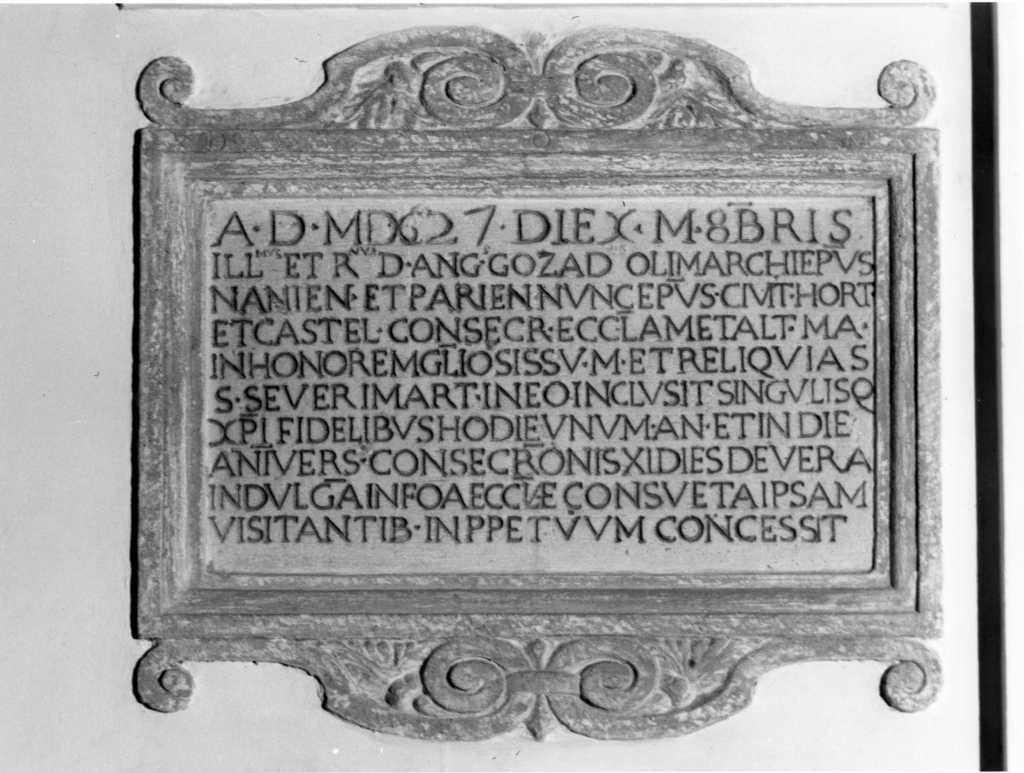 A·D·MDC27·DIE X·M·8B̄RIS
ILLᵐᵘˢ ET Rᵐᵘˢ D·ANG·GOZAD OLIM ARCHIEP̄VS
NANIEN·ET PARIEN·NVNC EP̄VS·CIVIT·HORT
ET CASTEL·CONSECR·ECCL̄AM ET ALT·MA·
IN HONOREM GL̄IOSISS V·M·ET RELIQVIAS
S·SEVERI MART·IN EO INCLVSIT SINGVLISQ
XP̄I FIDELIBVS HODIE VNVM·AN·ET IN DIE
ANIVERS·CONSECR̄ONIS XI DIES DE VERA
INDVLḠA IN FOA ECCL̄Æ CONSVETA IPSAM
VISITANTIB·IN PPETVVM CONCESSIT